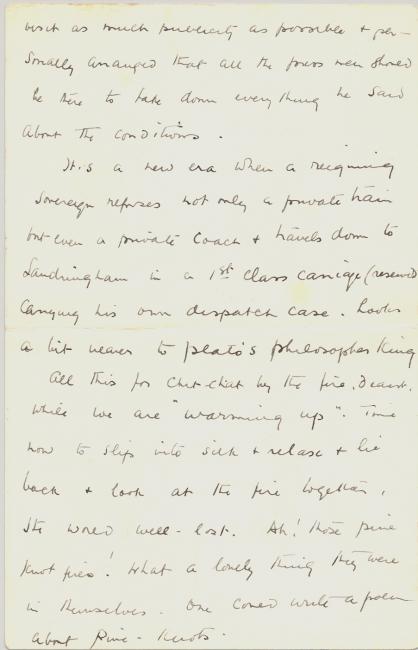 visit as much publicity as possible + per-
sonally arranged that all the press men should
be there to take down everything he said
about the conditions.
It is a new era when a reigning
sovereign refuses not only a private train
but even a private coach + travels down to
Sandringham in a 1st class carriage (reserved
carrying his own dispatch case. Looks
a bit nearer to plato's philosopher King
All this for chit-chat by the fire, Dearest,
while we are "warming up". Time
now to slip into silk + relax + lie
back + look at the fire together,
the world well-lost. Ah! those pine
knot fires! What a lovely thing they were
in themselves. One could write a poem
about Pine-Knots.